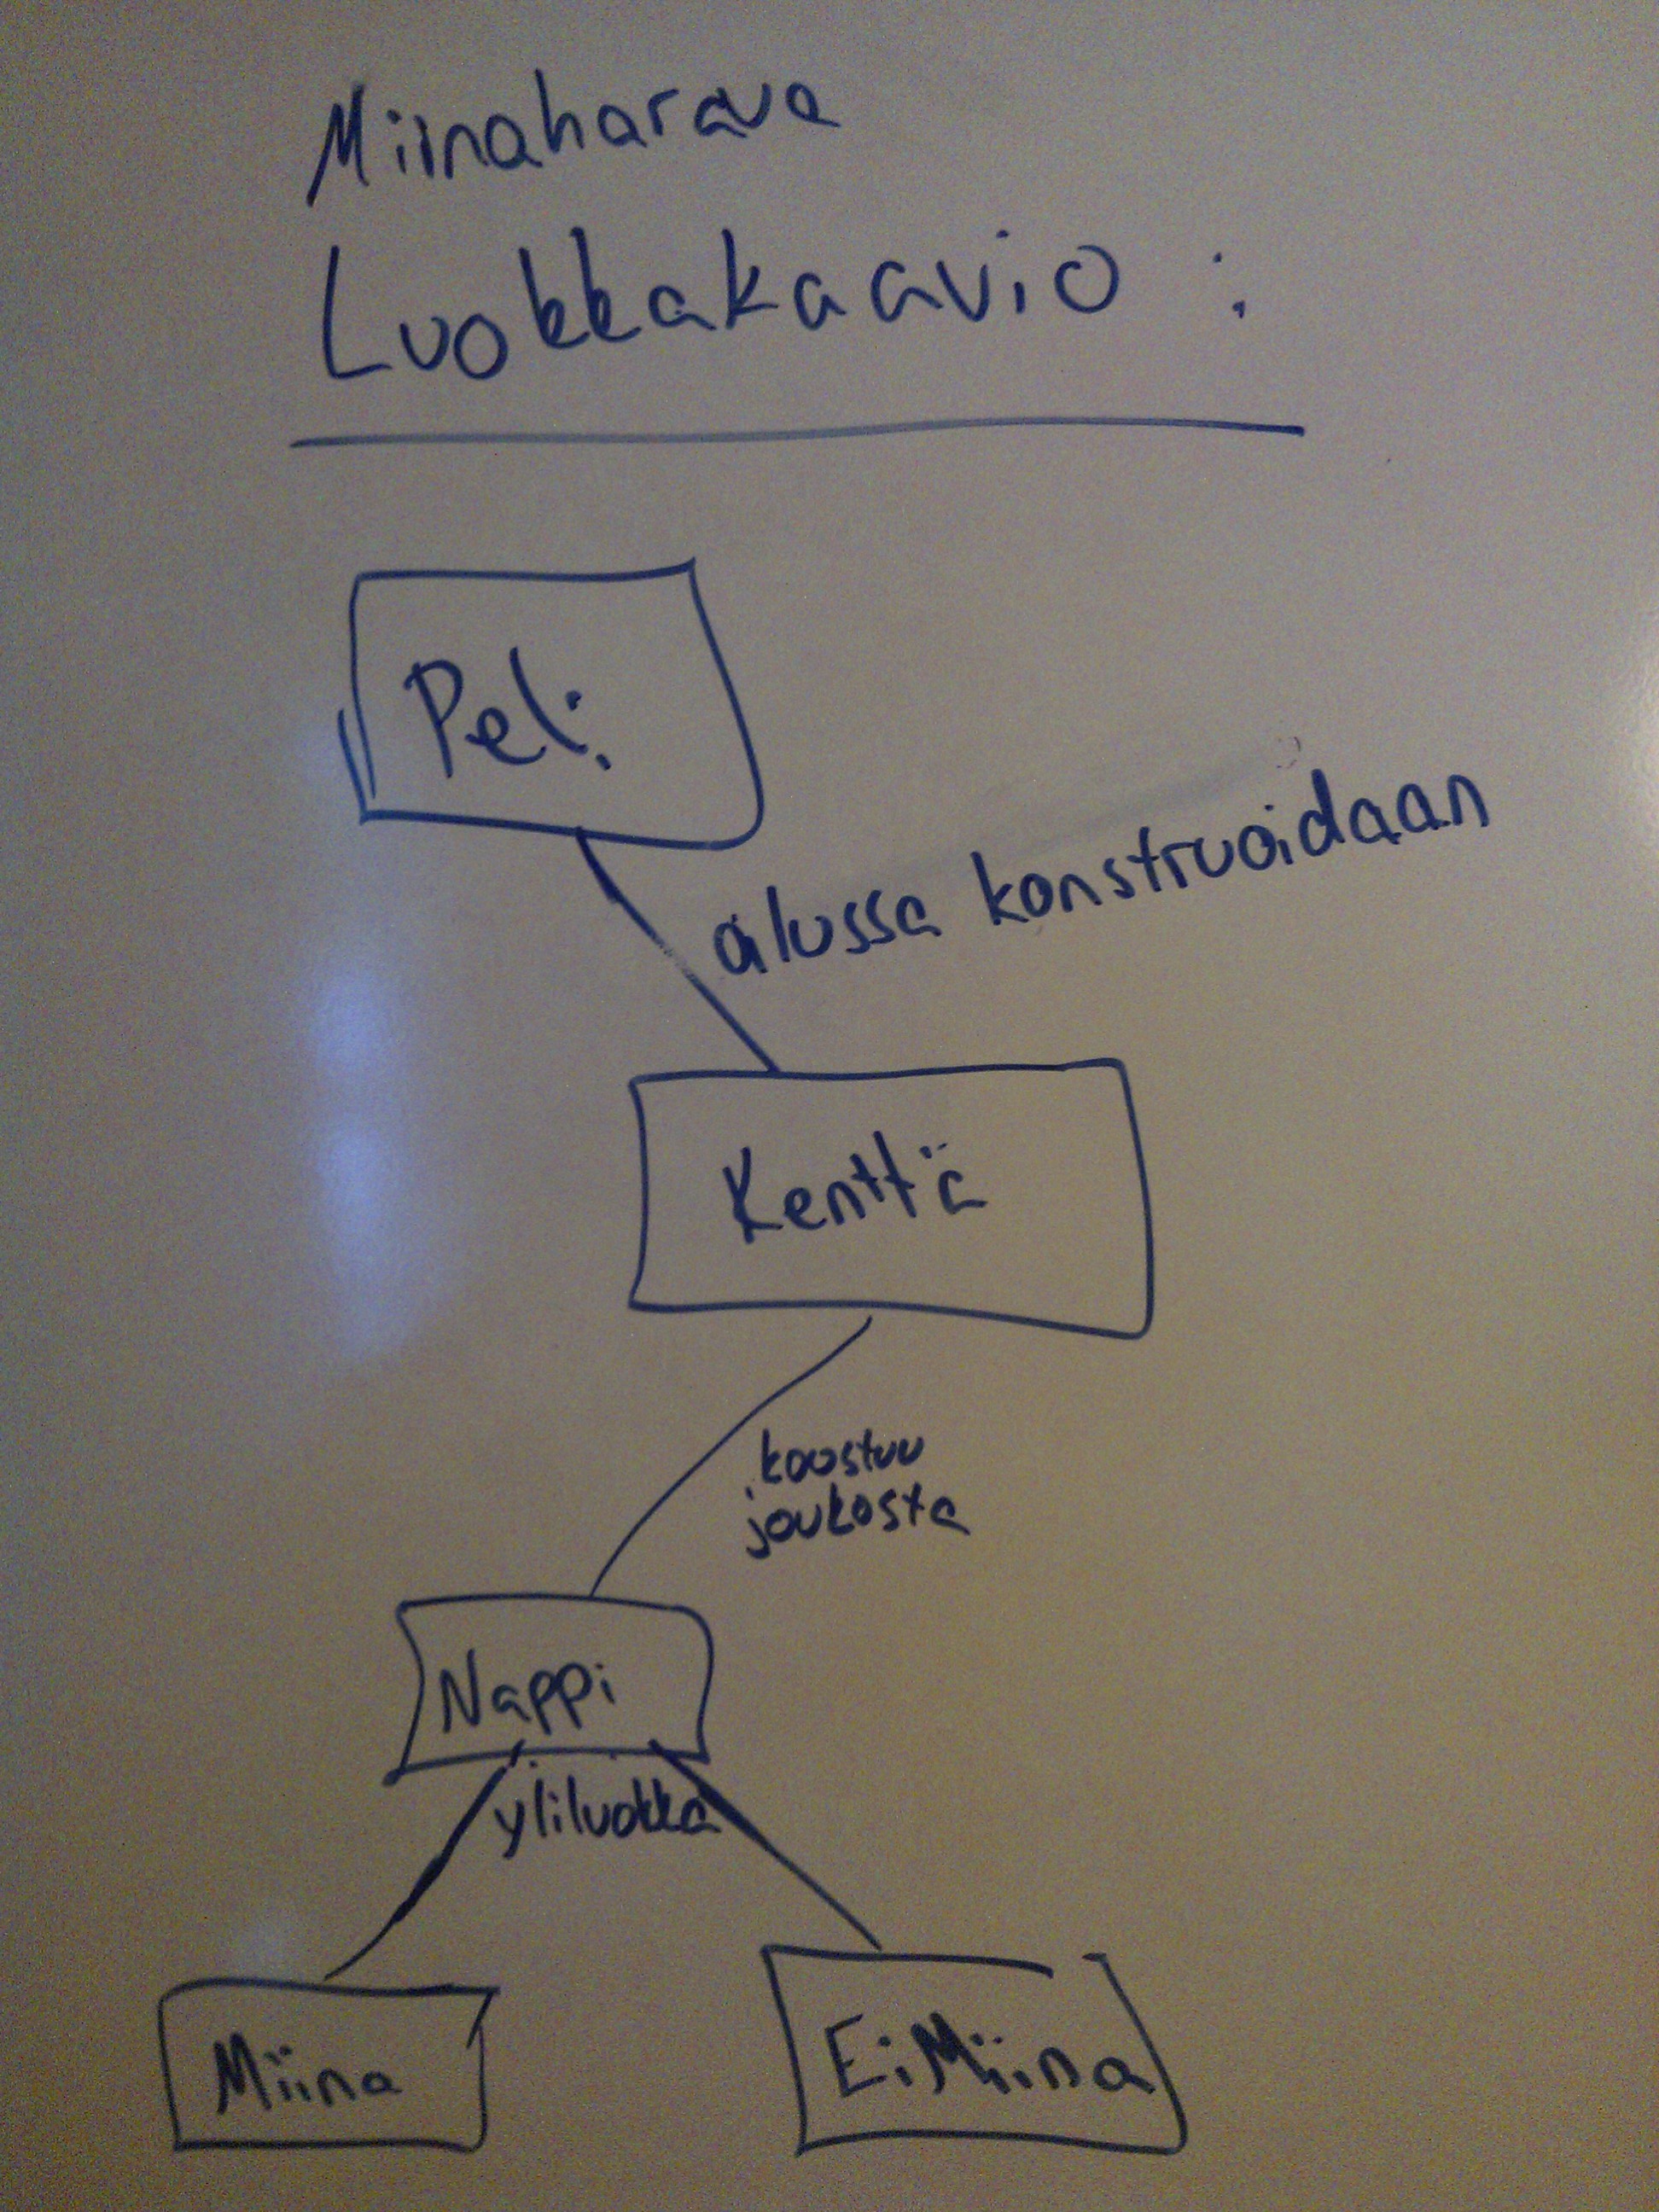 Miinaharava
Luokkakaavio :
Peli
alussa konstruoidaan
Kenttä
koostuu
joukosta
Nappi
yliluokka
Miina
EiMiina